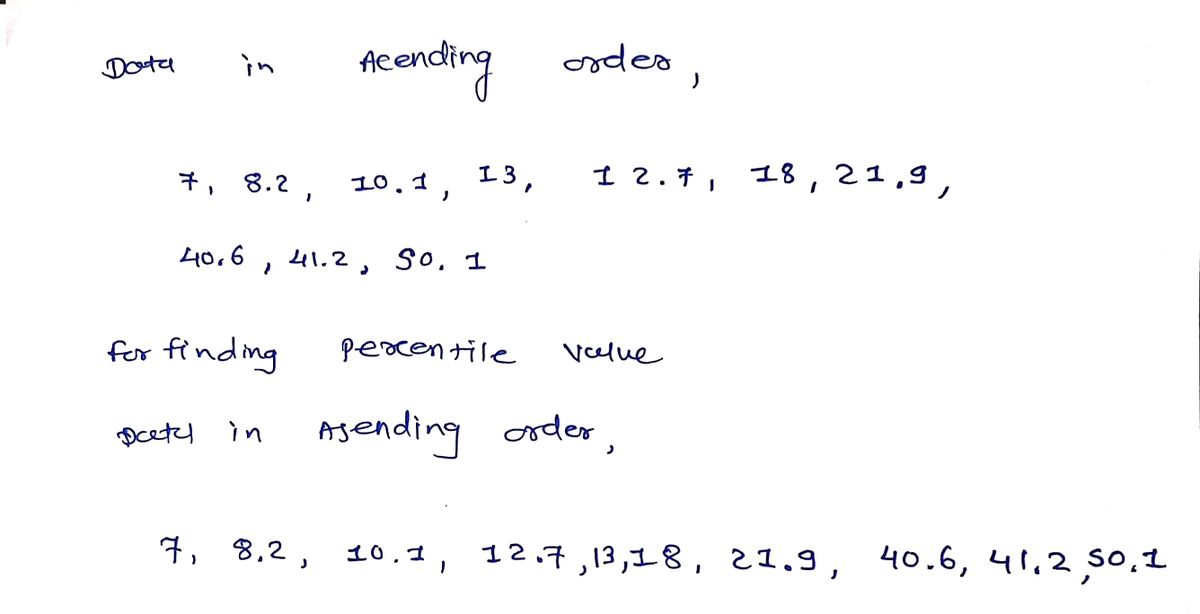 Data in Acending order,
7, 8.2, 10.1, 13, 12.7, 18, 21.9,
40.6, 41.2, 50.1
for finding percentile value
Data in Asending order,
7, 8.2, 10.1, 12.7, 13, 18, 21.9, 40.6, 41.2, 50.1